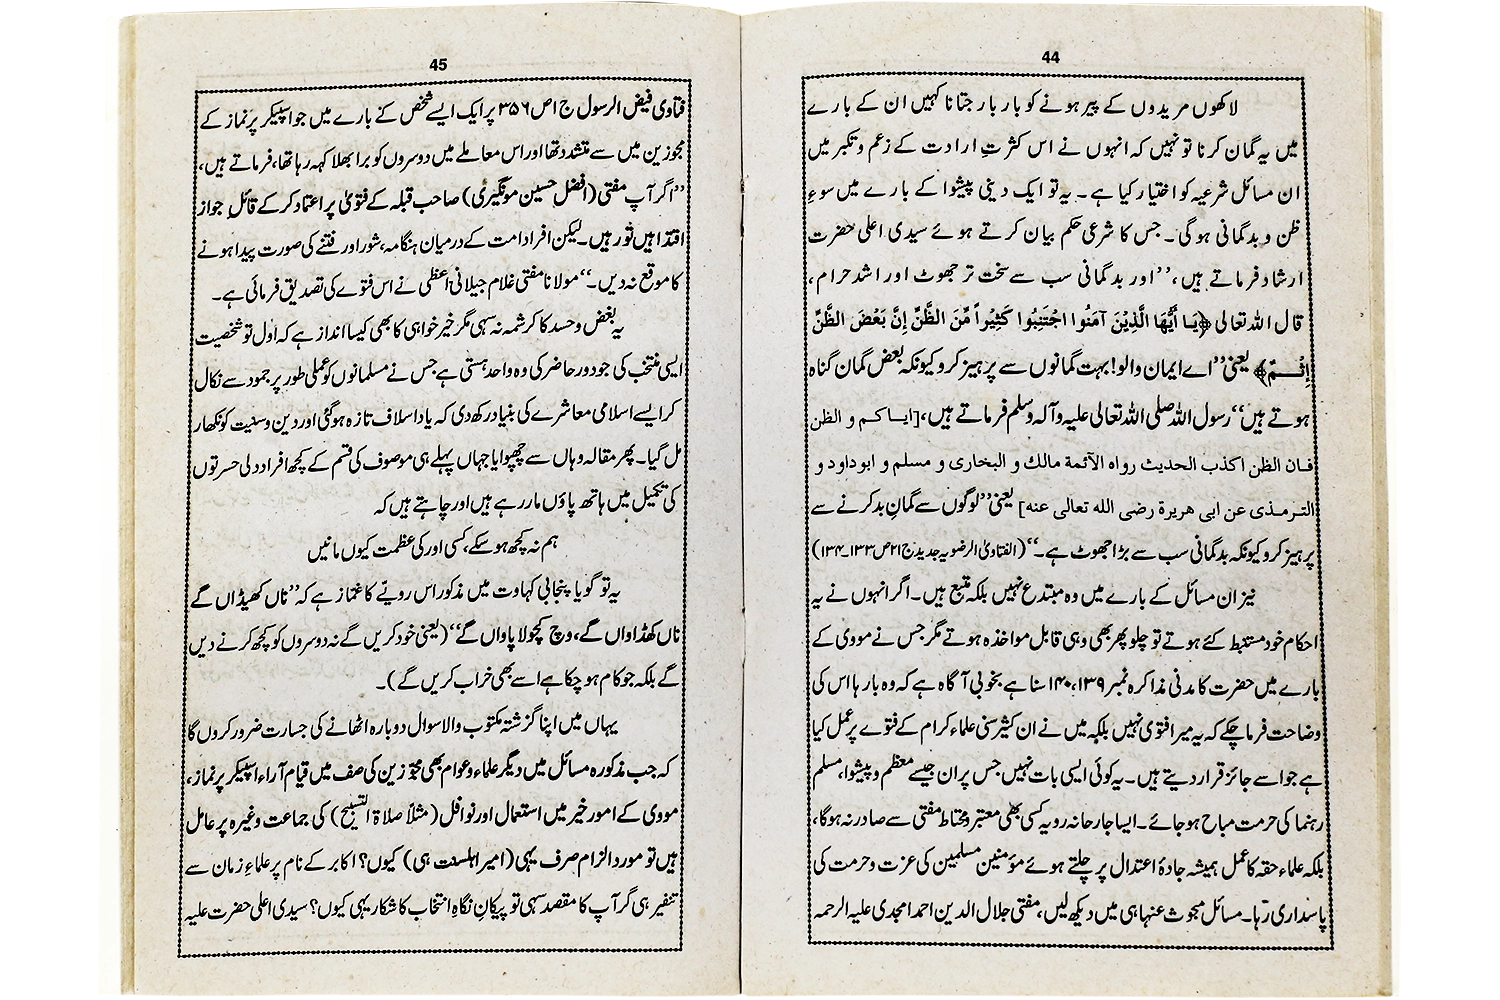 44
لاکھوں مریدوں کے پیر ہونے کو بار بار جتانا کہیں ان کے بارے
میں یہ گمان کرنا تو نہیں کہ انہوں نے اس کثرتِ ارادت کے زعم و تکبر میں
ان مسائل شرعیہ کو اختیار کیا ہے۔ یہ تو ایک دینی پیشوا کے بارے میں سوءِ
ظن و بدگمانی ہوگی۔ جس کا شرعی حکم بیان کرتے ہوئے سیدی اعلی حضرت
ارشاد فرماتے ہیں، ’’اور بدگمانی سب سے سخت تر جھوٹ اور اشد حرام،
قال اللہ تعالی ﴿يَا أَيُّهَا الَّذِيْنَ آمَنُوا اجْتَنِبُوا كَثِيْراً مِّنَ الظَّنِّ إِنَّ بَعْضَ الظَّنِّ
إِثْمٌ﴾ یعنی ’’اے ایمان والو! بہت گمانوں سے پرہیز کرو کیونکہ بعض گمان گناہ
ہوتے ہیں‘‘ رسول اللہ صلی اللہ تعالی علیہ وآلہ وسلم فرماتے ہیں، [اياكم و الظن
فان الظن اكذب الحديث رواه الآئمة مالك و البخارى و مسلم و ابوداود و
الترمذى عن ابى هريرة رضى الله تعالى عنه] یعنی ’’لوگوں سے گمانِ بد کرنے سے
پرہیز کرو کیونکہ بدگمانی سب سے بڑا جھوٹ ہے۔‘‘ (الفتاویٰ الرضویہ جدید ج۲۱ص۱۳۳۔۱۳۴)
نیز ان مسائل کے بارے میں وہ مبتدع نہیں بلکہ متبع ہیں۔ اگر انہوں نے یہ
احکام خود مستنبط کئے ہوتے تو چلو پھر بھی وہی قابل مواخذہ ہوتے مگر جس نے مووی کے
بارے میں حضرت کا مدنی مذاکرہ نمبر ۱۳۹،۱۴۰ سنا ہے بخوبی آگاہ ہے کہ وہ بارہا اس کی
وضاحت فرما چکے کہ یہ میرا فتوی نہیں بلکہ میں نے ان کثیر سنی علماء کرام کے فتوے پر عمل کیا
ہے جو اسے جائز قرار دیتے ہیں۔ یہ کوئی ایسی بات نہیں جس پر ان جیسے معظم و پیشوا، مسلم
رہنما کی حرمت مباح ہو جائے۔ ایسا جارحانہ رویہ کسی بھی معتبر و محتاط مفتی سے صادر نہ ہوگا،
بلکہ علماء حقہ کا عمل ہمیشہ جادۂ اعتدال پر چلتے ہوئے مؤمنین مسلمین کی عزت و حرمت کی
پاسداری رہا۔ مسائل مبحوث عنہا ہی میں دیکھ لیں، مفتی جلال الدین احمد امجدی علیہ الرحمہ
45
فتاوی فیض الرسول ج اص ۳۵۶ پر ایک ایسے شخص کے بارے میں جو اسپیکر پر نماز کے
مجوزین میں سے متشدد تھا اور اس معاملے میں دوسروں کو برا بھلا کہہ رہا تھا، فرماتے ہیں،
’’اگر آپ مفتی (افضل حسین مونگیری) صاحب قبلہ کے فتویٰ پر اعتماد کر کے قائلِ جواز
اقتدا ہیں تو رہیں۔ لیکن افراد امت کے درمیان ہنگامہ، شور اور فتنے کی صورت پیدا ہونے
کا موقع نہ دیں۔‘‘ مولانا مفتی غلام جیلانی اعظمی نے اس فتوے کی تصدیق فرمائی ہے۔
یہ بغض و حسد کا کرشمہ نہ سہی مگر خیر خواہی کا بھی کیسا انداز ہے کہ اول تو شخصیت
ایسی منتخب کی جو دور حاضر کی وہ واحد ہستی ہے جس نے مسلمانوں کو عملی طور پر جمود سے نکال
کر ایسے اسلامی معاشرے کی بنیاد رکھ دی کہ یاد اسلاف تازہ ہوگئی اور دین و سنیت کو نکھار
مل گیا۔ پھر مقالہ وہاں سے چھپوایا جہاں پہلے ہی موصوف کی قسم کے کچھ افراد دلی حسرتوں
کی تکمیل میں ہاتھ پاؤں مار رہے ہیں اور چاہتے ہیں کہ
ہم نہ کچھ ہو سکے، کسی اور کی عظمت کیوں مانیں
یہ تو گویا پنجابی کہاوت میں مذکور اس رویّے کا غماز ہے کہ ’’ناں کھیڈاں گے
ناں کھڈاواں گے، وچ کچولا پاواں گے‘‘ (یعنی خود کریں گے نہ دوسروں کو کچھ کرنے دیں
گے بلکہ جو کام ہو چکا ہے اسے بھی خراب کریں گے)۔
یہاں میں اپنا گزشتہ مکتوب والا سوال دوبارہ اٹھانے کی جسارت ضرور کروں گا
کہ جب مذکورہ مسائل میں دیگر علماء و عوام بھی مجوّزین کی صف میں قیام آراء اسپیکر پر نماز،
مووی کے امور خیر میں استعمال اور نوافل (مثلاً صلاۃ التسبیح) کی جماعت وغیرہ پر عامل
ہیں تو مورد الزام صرف یہی (امیر اہلسنت ہی) کیوں؟ اکابر کے نام پر علماءِ زمان سے
تنفیر ہی گر آپ کا مقصد سہی تو پیکانِ نگاہِ انتخاب کا شکار یہی کیوں؟ سیدی اعلی حضرت علیہ